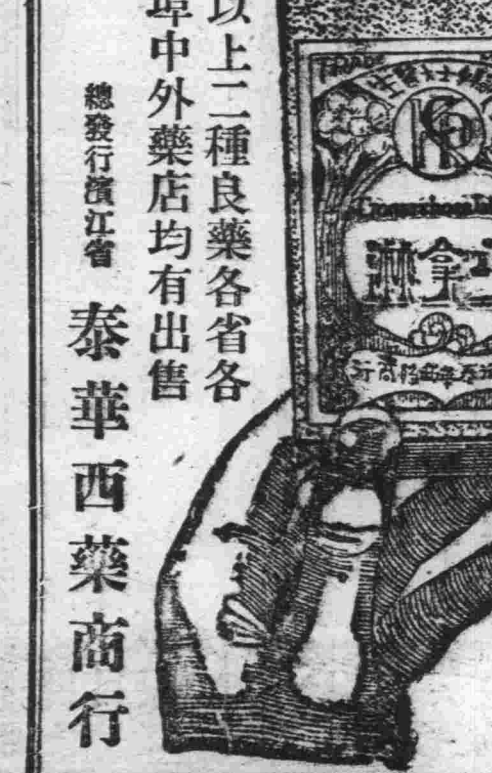 以上二種良藥各省各
埠中外藥店均有出售
總發行濱江省 泰華西藥商行
TRADE
淋拿